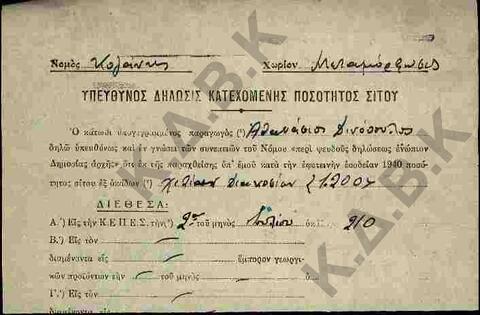 Νομὸς Κοζάνης Χωρίον Μεταμόρφωσις
ΥΠΕΥΘΥΝΟΣ ΔΗΛΩΣΙΣ ΚΑΤΕΧΟΜΕΝΗΣ ΠΟΣΟΤΗΤΟΣ ΣΙΤΟΥ
Ὁ κάτωθι ὑπογεγραμμένος παραγωγὸς (¹) Ἀθανάσιος Δινόπουλος
δηλῶ ὑπευθύνως καὶ ἐν γνώσει τῶν συνεπειῶν τοῦ Νόμου «περὶ ψευδοῦς δηλώσεως ἐνώπιον
Δημοσίας ἀρχῆς» ὅτι ἐκ τῆς παραχθείσης ὑπ' ἐμοῦ κατὰ τὴν ἐφετεινὴν ἐσοδείαν 1940 ποσό-
τητος σίτου ἐξ ὀκάδων (²) χιλίων διακοσίων 1.200
ΔΙΕΘΕΣΑ:
Α΄.) Εἰς τὴν Κ.Ε.Π.Ε.Σ. τὴν 2αν τοῦ μηνὸς Ἰουλίου 210
Β΄.) Εἰς τὸν
διαμένοντα εἰς ἔμπορον γεωργι-
κῶν προϊόντων τὴν τοῦ μηνὸς
Γ΄.) Εἰς τὸν
διαμένοντα εἰς
Κ.Δ.Β.Κ
Κ.Δ.Β.Κ